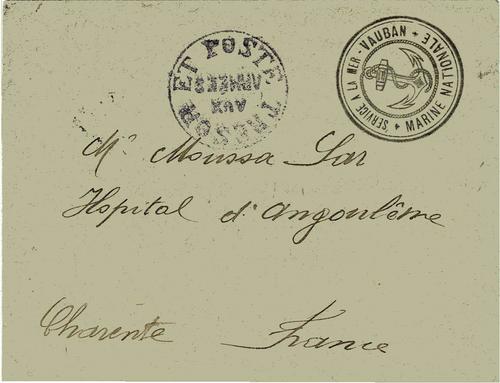 TRESOR ET POSTE
AUX
ARMEES
SERVICE A LA MER - VAUBAN + MARINE NATIONALE +
Mr Moussa Sar
Hspital d'Angoulême
Charente France